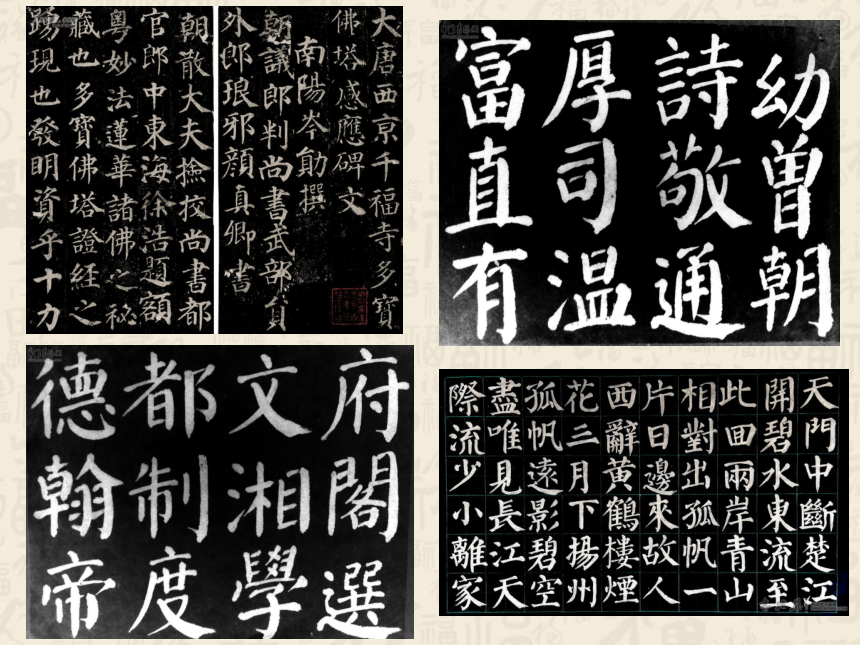 大唐西亰千福寺多寶
佛塔感應碑文
南陽岑勛撰
朝議郎判尚書武部員
外郎琅邪顏真卿書
朝散大夫撿挍尚書都
官郎中東海徐浩題額
粵妙法蓮華諸佛之秘
藏也多寶佛塔證經之
踴現也發明資乎十力
幼曾朝
詩敬通
厚司温
富直有
府閣選
文湘學
都制度
德翰帝
天門中斷楚江
開碧水東流至
此囬兩岸青山
相對出孤帆一
片日邊來故人
西辭黃鶴樓煙
花三月下揚州
孤帆遠影碧空
盡唯見長江天
際流少小離家